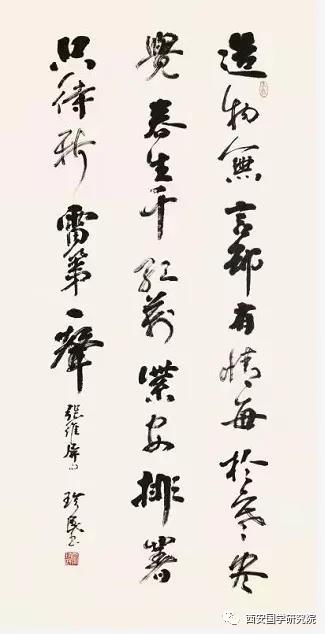 造物無言却有情每於寒尽
覺春生千紅萬紫安排著
只待新雷第一聲
張維屏
西安国学研究院